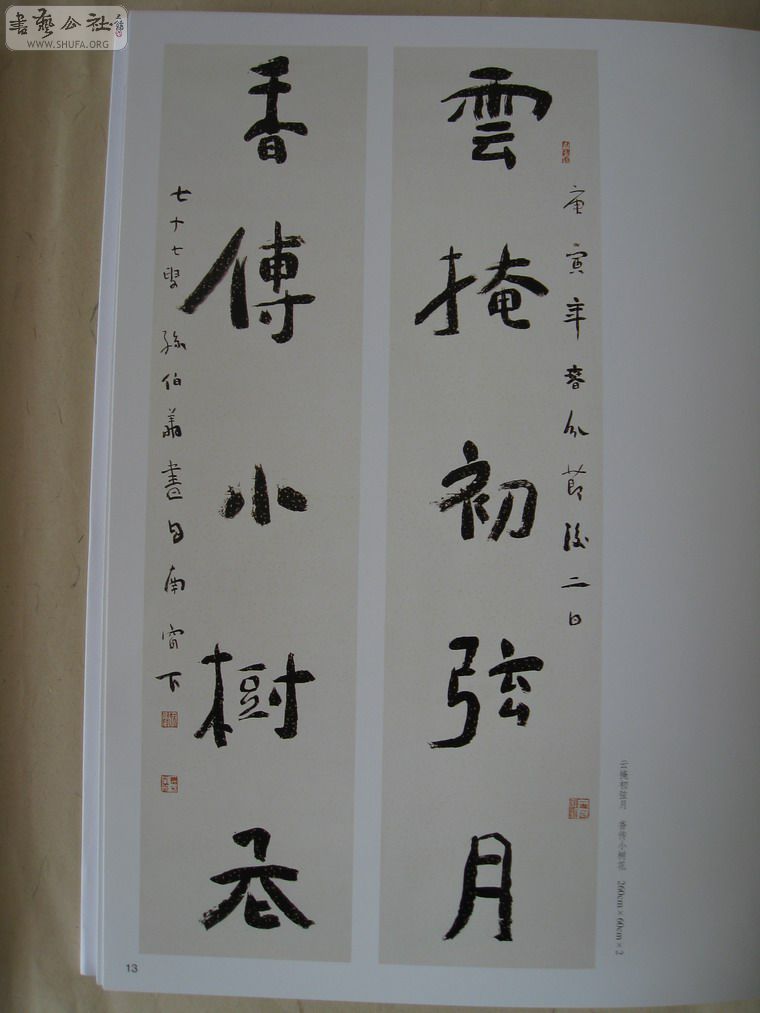 書藝公社
WWW.SHUFA.ORG
庚寅年春分節後二日
雲掩初弦月
香傳小樹花
七十七叟 孫伯翔書 南窗下
云掩初弦月 香传小树花 260cm×60cm×2
13